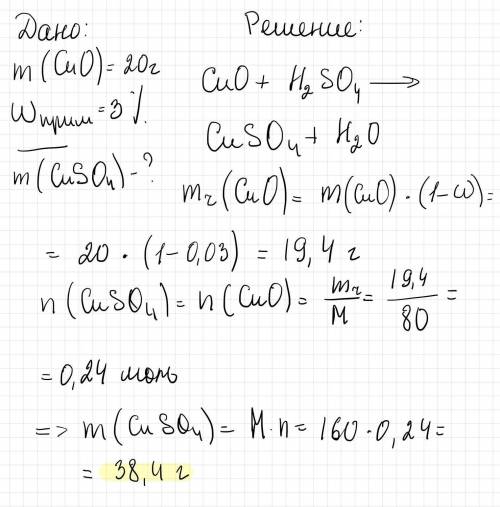 Дано: Решение:
m(CuO)=20г
Wприм=3%.
m(CuSO₄)-?
CuO + H₂SO₄ ⟶
CuSO₄ + H₂O
mч(CuO)= m(CuO)·(1-ω)=
= 20 · (1-0,03) = 19,4 г
n(CuSO₄)= n(CuO)= mч/M = 19,4/80 =
=0,24 моль
=> m(CuSO₄)= M·n= 160·0,24=
= 38,4 г